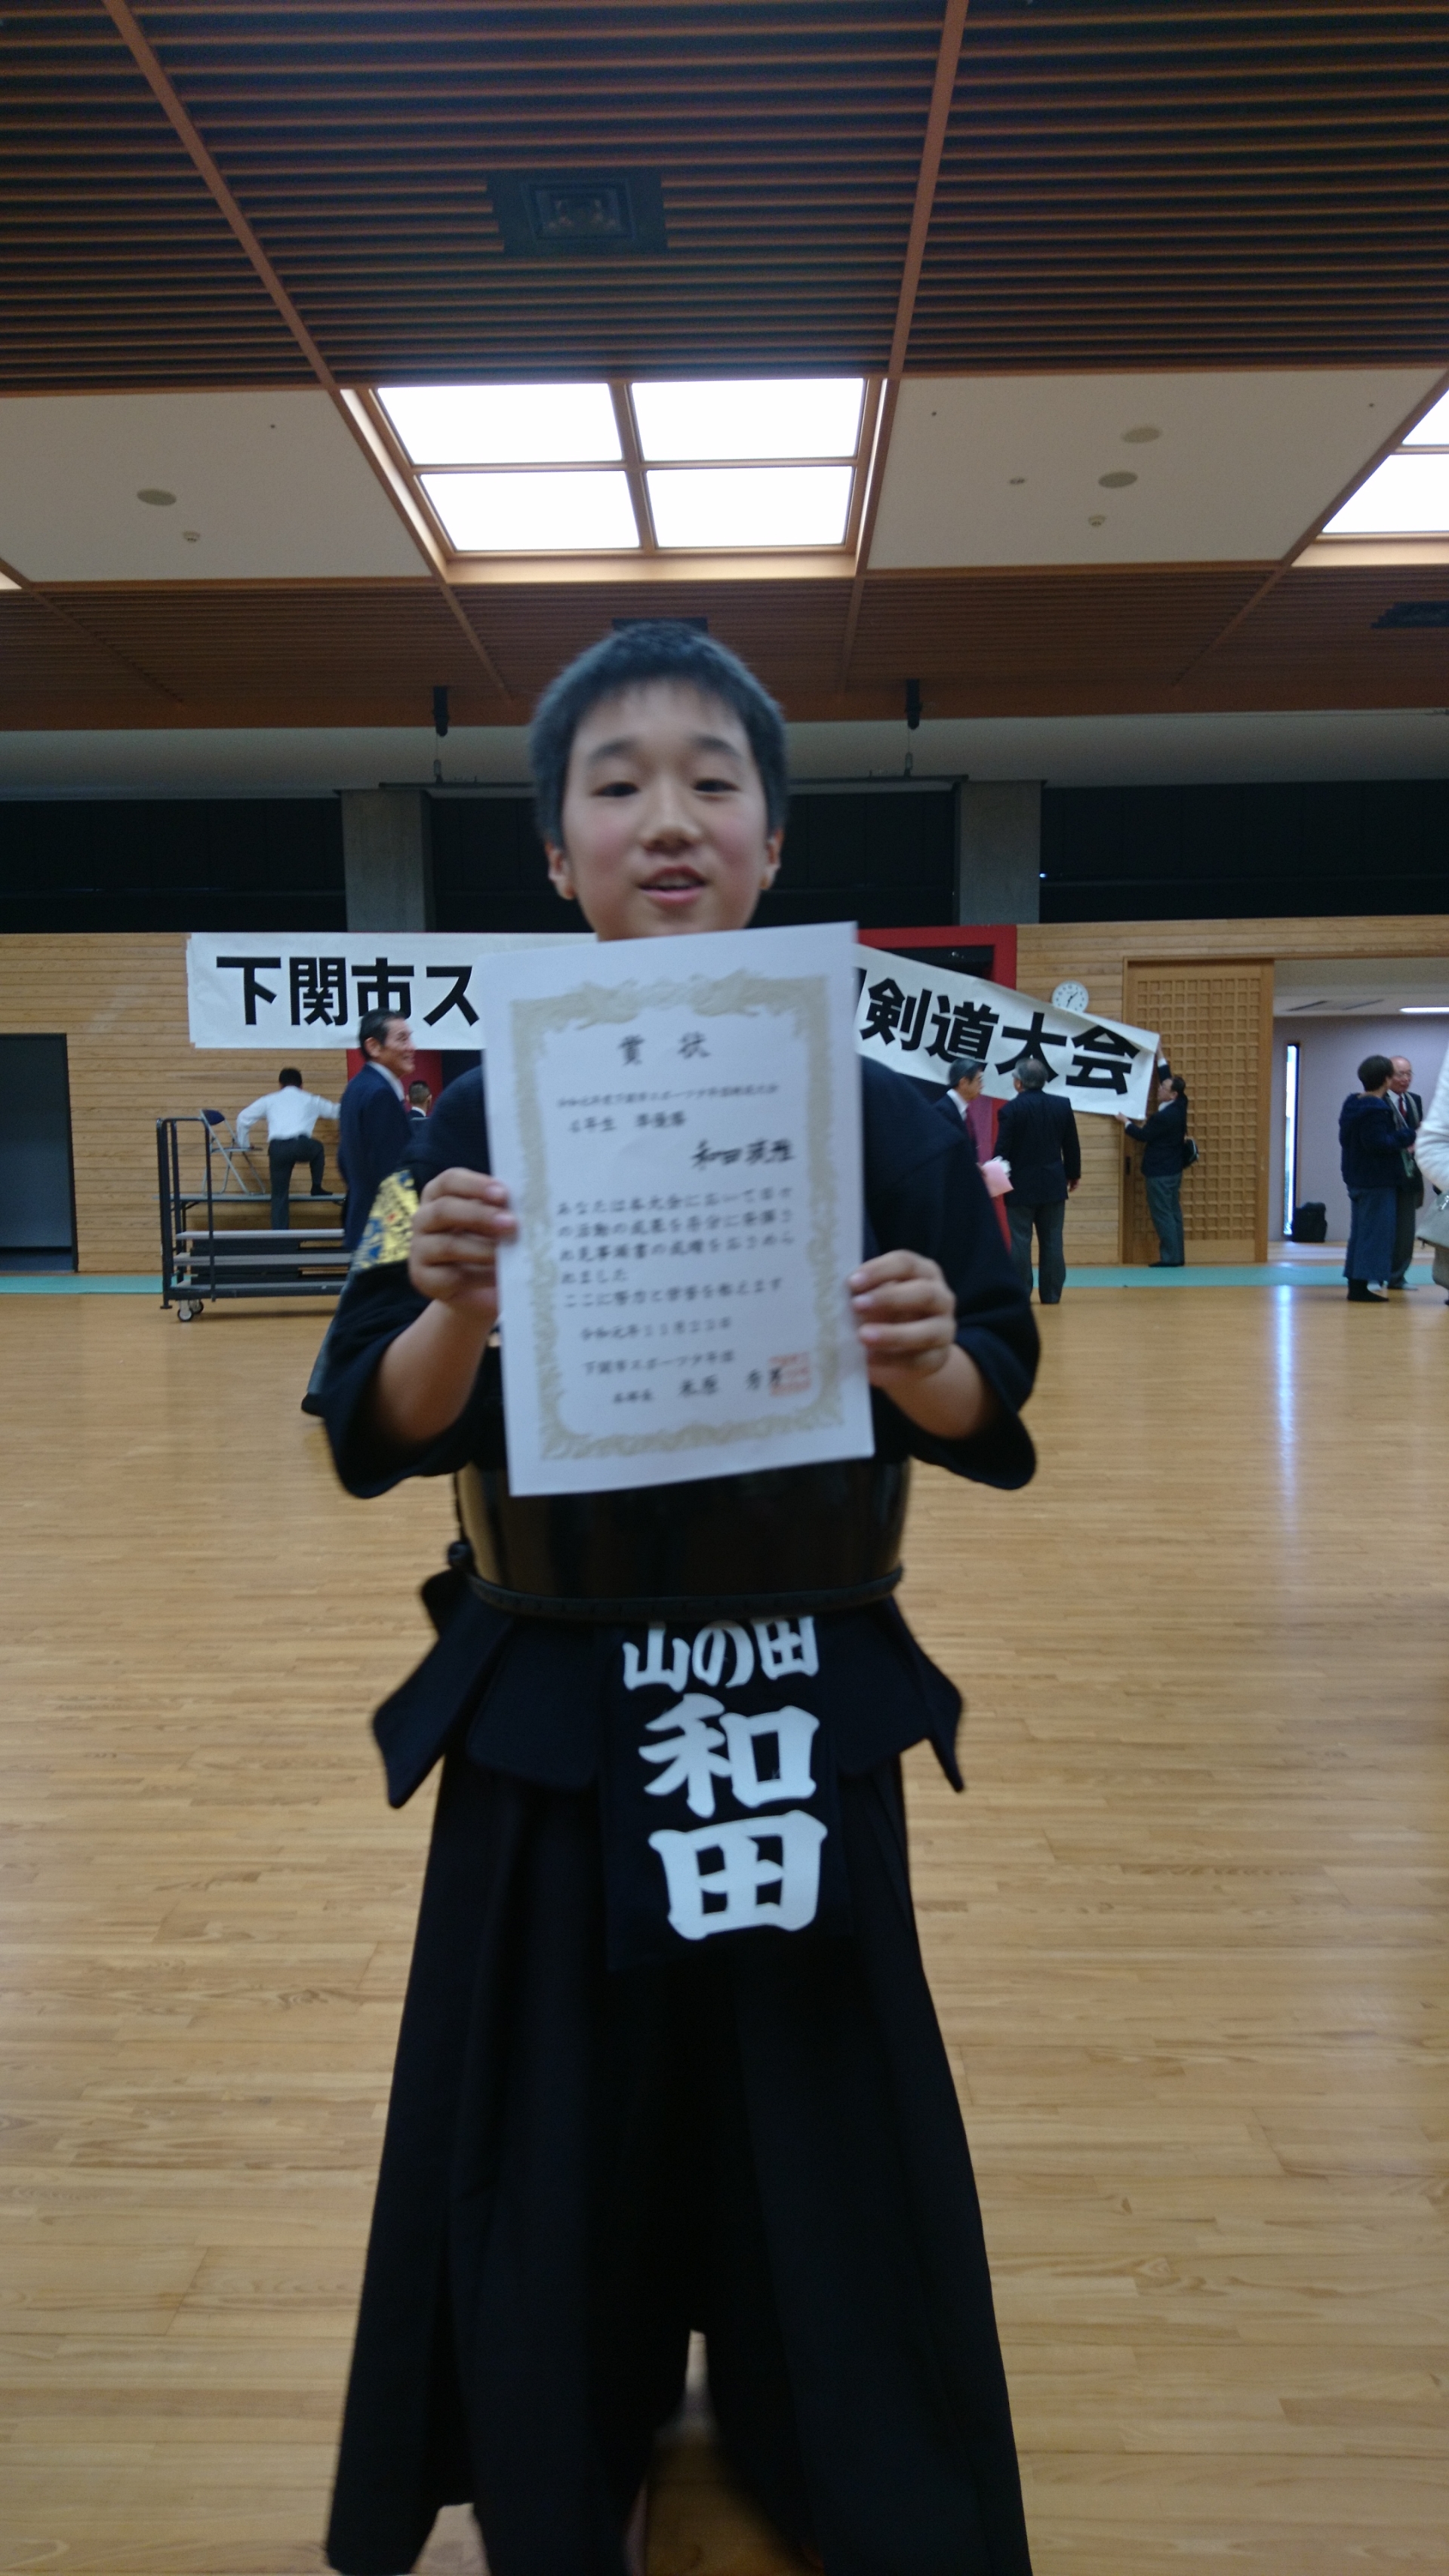 下関市ス
剣道大会
賞状
令和元年度下関市スポーツ少年団剣道大会
6年生 準優勝
和田
あなたは本大会において日々
の活動の成果を存分に発揮さ
れ見事頭書の成績をおさめら
れました
ここに努力と栄誉を称えます
令和元年11月23日
下関市スポーツ少年団
本部長
山の田
和
田